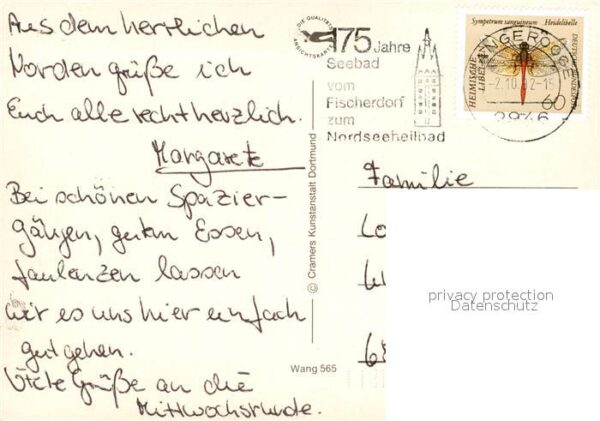 Aus dem herrlichen
Norden grüße ich
Euch alle recht herzlich.
Margarete
Bei schönen Spazier-
gängen, gutem Essen,
faulenzen lassen
wir es uns hier einfach
gut gehen.
Viele Grüße an die
Mittwochsrunde.
DIE QUALITÄTS
ANSICHTSKARTE
175 Jahre
Seebad
vom
Fischerdorf
zum
Nordseeheilbad
Sympetrum sanguineum Heidelibelle
HEIMISCHE
LIBELLEN
60
WANGEROOGE
-2.10.92-15
2946
© Cramers Kunstanstalt Dortmund
Wang 565
Familie
privacy protection
Datenschutz